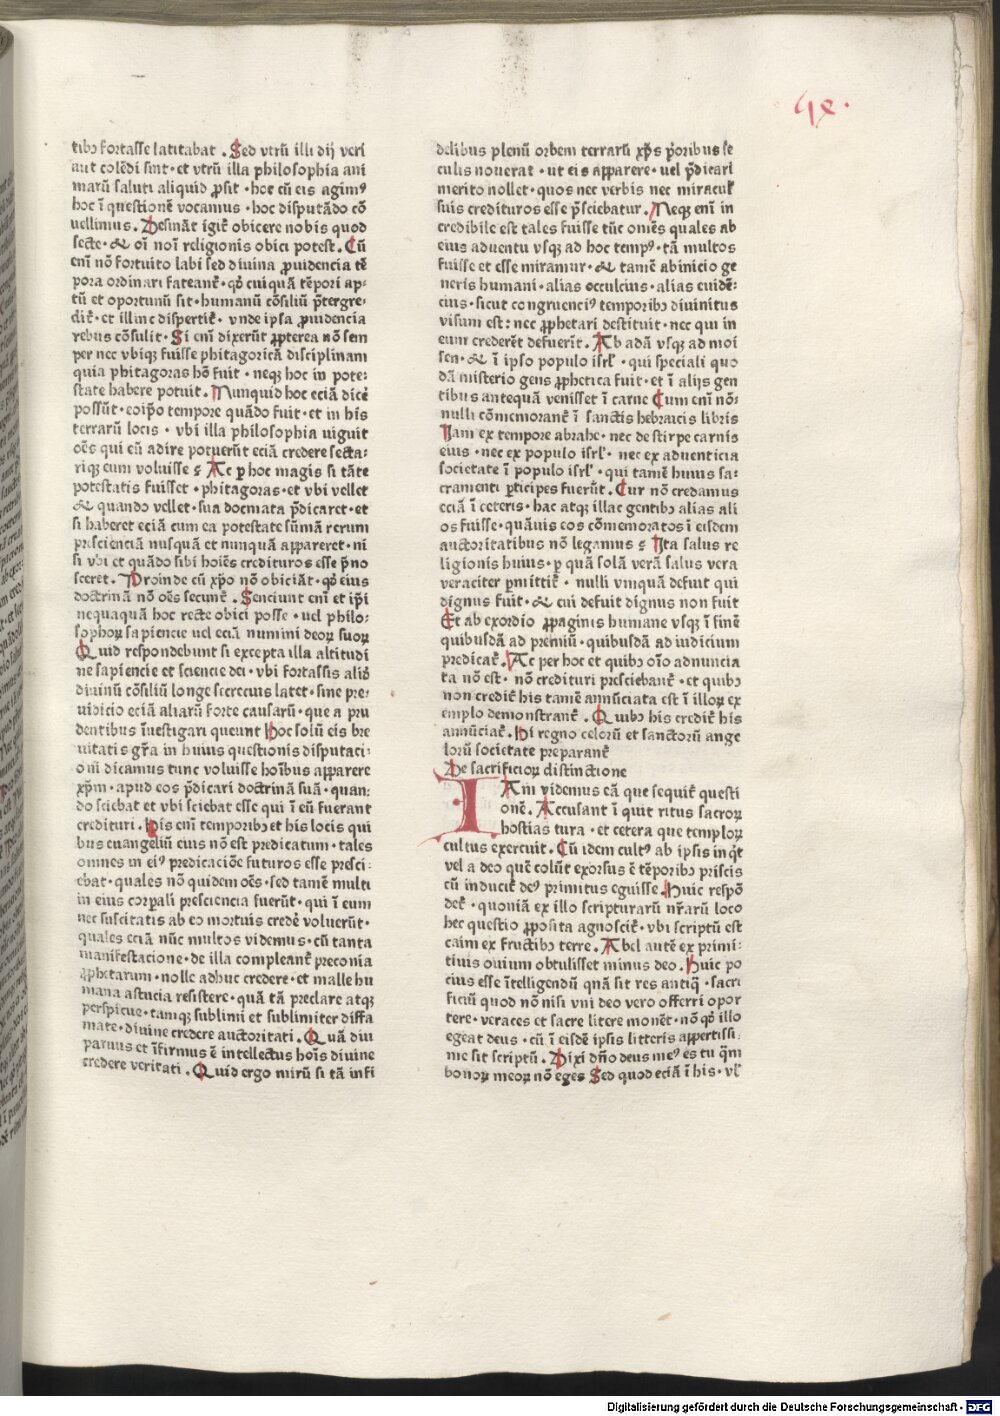 tibꝫ fortasse latitabat . Sed vtrū illi dij veri
aut colēdi sint · et vtrū illa philosophia ani
marū saluti aliquid ꝓsit · hoc cū eis agimꝰ
hoc ī questionē vocamus · hoc disputādo cō
uellimus . Desināt igit̄ obicere nobis quod
secte · & oī noī religionis obici potest . Cū
enī nō fortuito labi sed diuina ꝓuidencia tē
pora ordinari fateant̄ · qđ cuiquā tēpori ap⸗
tū et oportunū sit · humanū cōsiliū p̄tergre⸗
dit̄ · et illinc dispertit̄ · vnde ipsa ꝓuidencia
rebus cōsulit · Si enī dixerūt ꝓpterea nō sem
per nec vbiqꝫ fuisse phitagoricā disciplinam
quia phitagoras hō fuit · neqꝫ hoc in pote⸗
state habere potuit . Nunquid hoc eciā dicē
possūt · eoip̄o tempore quādo fuit · et in his
terrarū locis · vbi illa philosophia uiguit
oēs qui eū adire potuerūt eciā credere secta⸗
riqꝫ eum voluisse ꝭ Ac ꝑ hoc magis si tāte
potestatis fuisset · phitagoras · et vbi vellet
& quando vellet · sua docmata p̄dicaret · et
si haberet eciā cum ea potestate sūmā rerum
presciencia nusquā et nunquā appareret · ni
si vbi et quādo sibi hoiēs credituros esse p̄no
sceret . Proinde cū xp̄o nō obiciāt · qđ eius
doctrinā nō oēs secunt̄ . Senciunt enī et ip̄i
nequaquā hoc recte obici posse · uel philo⸗
sophoꝝ sapiencie uel eciā numini deoꝝ suoꝝ
Quid respondebunt si excepta illa altitudi
ne sapiencie et sciencie dei · vbi fortassis aliđ
diuinū cōsiliū longe secrecius latet · sine pre⸗
iudicio eciā aliarū forte causarū · que a pru
dentibus īuestigari queunt Hoc solū eis bre
uitatis gr̄a in huius questionis disputaci⸗
oni dicamus tunc voluisse hoībus apparere
xp̄m · apud eos p̄dicari doctrinā suā · quan⸗
do sciebat et vbi sciebat esse qui ī eū fuerant
credituri . His enī temporibꝫ et his locis qui
bus euangeliū eius nō est predicatum · tales
omnes in eiꝰ predicaciōe futuros esse presci⸗
ebat · quales nō quidem oēs · sed tamē multi
in eius corꝑali presciencia fuerūt · qui ī eum
nec suscitatis ab eo mortuis credē voluerūt ·
quales eciā nūc multos videmus · cū tanta
manifestacione · de illa compleant̄ preconia
ꝓphetarum · nolle adhuc credere · et malle hu
mana astucia resistere · quā tā preclare atqꝫ
perspicue · tamqꝫ sublimi et sublimiter diffa
mate · diuine credere auctoritati . Quā diu
paruus et īfirmus ē intellectus hoīs diuine
credere veritati . Quid ergo mirū si tā infi
qx.
delibus plenū orbem terrarū xp̄s p̄oribus se
culis nouerat · ut eis apparere · uel p̄dicari
merito nollet · quos nec verbis nec miracul̄
suis credituros esse p̄sciebatur . Neqꝫ enī in
credibile est tales fuisse tūc omēs quales ab
eius aduentu vsqꝫ ad hoc tempꝰ · tā multos
fuisse et esse miramur · & tamē abinicio ge
neris humani · alias occulcius · alias euidē⸗
cius · sicut congruenciꝰ temporibꝫ diuinitus
visum est : nec ꝓphetari destituit · nec qui in
eum crederēt defuerīt . Ab adā vsqꝫ ad moi
sen · & ī ipso populo isrl̄ · qui speciali quo
dā misterio gens ꝓphetica fuit · et ī alijs gen
tibus antequā venisset ī carne Cum enī nō⸗
nulli cōmemorant̄ ī sanctis hebraicis libris
Iam ex tempore abrahe · nec de stirpe carnis
eius · nec ex populo isrl̄ · nec ex aduenticia
societate ī populo isrl̄ · qui tamē huius sa⸗
cramenti ꝑticipes fuerūt . Cur nō credamus
eciā ī ceteris · hac atqꝫ illac gentibꝫ alias ali
os fuisse · quāuis eos cōmemoratos ī eisdem
auctoritatibus nō legamus ꝭ Ita salus re
ligionis huius · ꝑ quā solā verā salus vera
veraciter ꝑmittit̄ · nulli vnquā defuit qui
dignus fuit · & cui defuit dignus non fuit
Et ab exordio ꝓpaginis humane vsqꝫ ī finē
quibusdā ad premiū · quibusdā ad iudicium
predicat̄ . Ac per hoc et quibꝫ oīo adnuncia
ta nō est · nō credituri presciebant̄ · et quibꝫ
non credit̄ his tamē annūciata est ī illoꝝ ex
emplo demonstrant̄ . Quibꝫ his credit̄ his
annūciat̄ . Hi regno celorū et sanctorū ange
lorū societate preparant̄
De sacrificioꝝ distinctione
IAm videmus eā que sequit̄ questi
onē . Accusant ī quit ritus sacroꝝ
hostias tura · et cetera que temploꝝ
cultus exercuit . Cū idem cultꝰ ab ipsis inq̄t
vel a deo quē colūt exorsus ē tēporibꝫ priscis
cū inducit̄ deꝰ primitus eguisse . Huic respō
det̄ · quoniā ex illo scripturarū nr̄arū loco
hec questio ꝓposita agnoscit̄ · vbi scriptū est
caim ex fructibꝫ terre . Abel autē ex primi⸗
tiuis ouium obtulisset minus deo . Huic po
cius esse ītelligendū qnā sit res antiq̄ · sacri
ficiū quod nō nisi vni deo vero offerri opor
tere · veraces et sacre litere monēt · nō qđ illo
egeat deus · cū ī eisdē ipsis litteris appertissi⸗
me sit scriptū . Dixi dn̄o deus meꝰ es tu qm̄
bonoꝝ meoꝝ nō eges Sed quod eciā ī his · vl̄
Digitalisierung gefördert durch die Deutsche Forschungsgemeinschaft - DFG